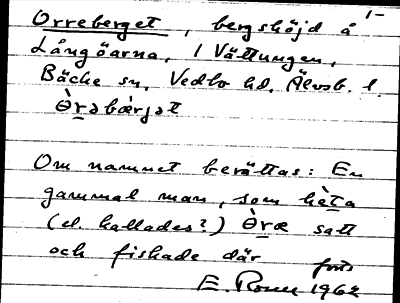 1-
Orreberget, bergshöjd å
Långöarna, i Vättungen,
Bäcke sn, Vedbo hd, Älvsb. l.
Ờrəbærjət
Om namnet berättas: En
gammal man, som hèta
(el. kallades?) Ờræ satt
och fiskade där
forts
E. 1962